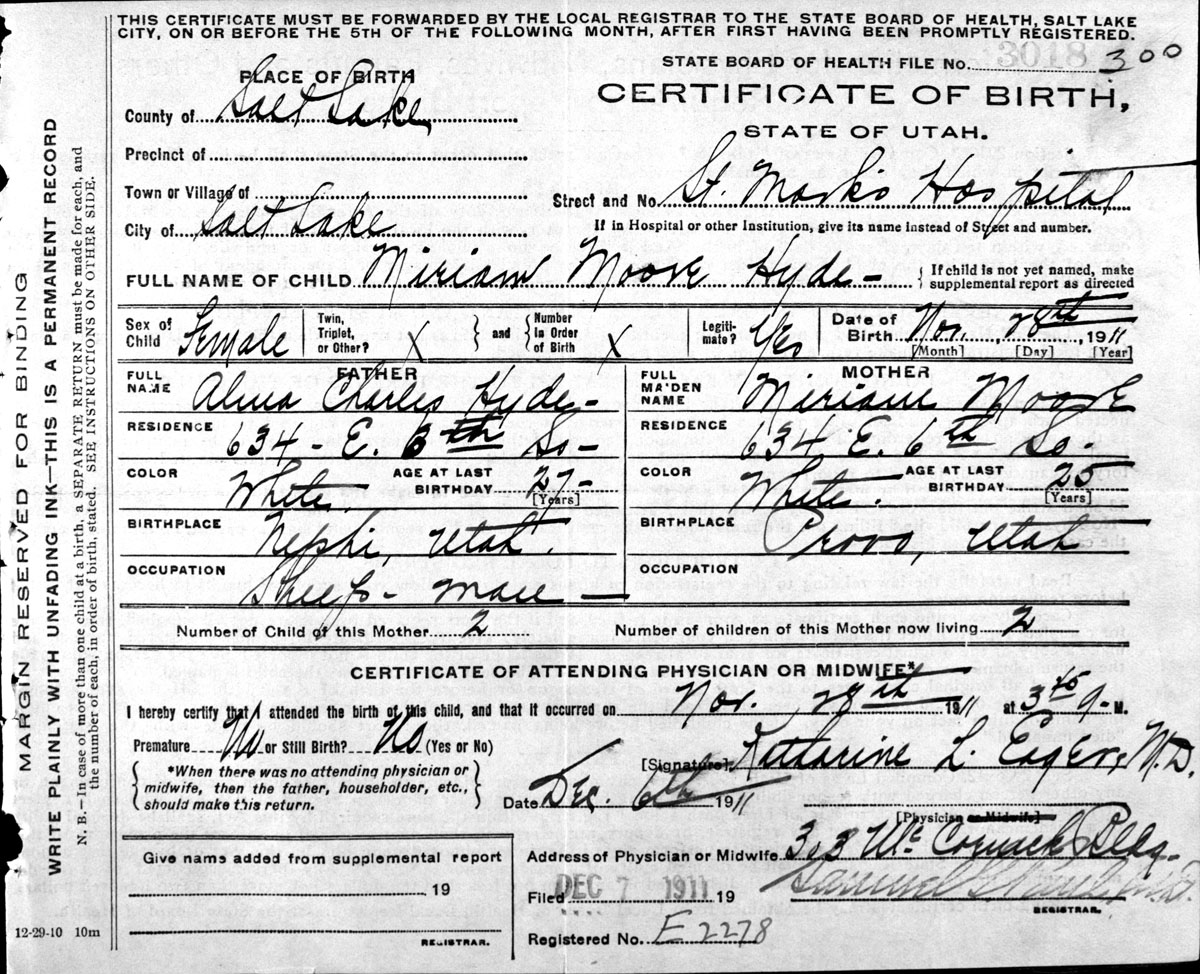 THIS CERTIFICATE MUST BE FORWARDED BY THE LOCAL REGISTRAR TO THE STATE BOARD OF HEALTH, SALT LAKE
CITY, ON OR BEFORE THE 5TH OF THE FOLLOWING MONTH, AFTER FIRST HAVING BEEN PROMPTLY REGISTERED.
STATE BOARD OF HEALTH FILE No. 3018 300
PLACE OF BIRTH
CERTIFICATE OF BIRTH,
STATE OF UTAH.
County of Salt Lake
Precinct of
Town or Village of
City of Salt Lake
Street and No. St. Mark's Hospital
If in Hospital or other Institution, give its name instead of Street and number.
FULL NAME OF CHILD Miriam Moore Hyde - { If child is not yet named, make supplemental report as directed
Sex of Child Female
Twin, Triplet, or Other? X } and { Number in Order of Birth X
Legitimate? Yes
Date of Birth Nov. 28th 1911
[Month] [Day] [Year]
FATHER
FULL NAME Alma Charles Hyde -
RESIDENCE 634 - E. 6th So -
COLOR White AGE AT LAST BIRTHDAY 27 - [Years]
BIRTHPLACE Nephi, Utah.
OCCUPATION Sheep - man -
MOTHER
FULL MAIDEN NAME Miriam Moore
RESIDENCE 634 E. 6th So -
COLOR White. AGE AT LAST BIRTHDAY 25 [Years]
BIRTHPLACE Provo, Utah
OCCUPATION
Number of Child of this Mother 2 Number of children of this Mother now living 2
CERTIFICATE OF ATTENDING PHYSICIAN OR MIDWIFE*
I hereby certify that I attended the birth of this child, and that it occurred on Nov. 28th 1911 at 3 45 M.
Premature No or Still Birth? No (Yes or No)
{ *When there was no attending physician or midwife, then the father, householder, etc., should make this return. }
[Signature] Katharine L. Eagers, M.D.
Date Dec. 6th 1911
[Physician or Midwife]
Address of Physician or Midwife 303 McCornick Bldg -
Give name added from supplemental report
19
REGISTRAR.
Filed DEC 7 1911 19
Samuel
REGISTRAR.
Registered No. E 2278
12-29-10 10m
MARGIN RESERVED FOR BINDING
WRITE PLAINLY WITH UNFADING INK—THIS IS A PERMANENT RECORD
N. B.—In case of more than one child at a birth, a SEPARATE RETURN must be made for each, and
the number of each, in order of birth, stated. SEE INSTRUCTIONS ON OTHER SIDE.